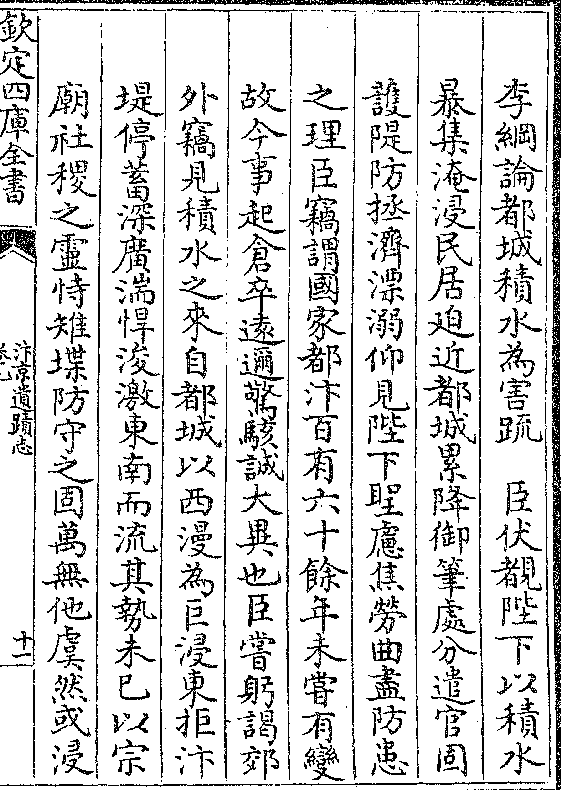 李綱論都城積水為害疏　臣伏覩陛下以積水
暴集淹浸民居廹近都城累降御筆處分遣官固
護隄防拯濟漂溺仰見陛下聖慮焦勞曲盡防患
之理臣竊謂國家都汴百有六十餘年未嘗有變
故今事起倉卒逺邇驚駭誠大異也臣嘗躬謁郊
外竊見積水之來自都城以西漫為巨浸東拒汴
堤停蓄深廣湍悍浚激東南而流其勢未已以宗
廟社稷之靈恃雉堞防守之固萬無他虞然或浸
欽定四庫全書
汴京遺蹟志
十一